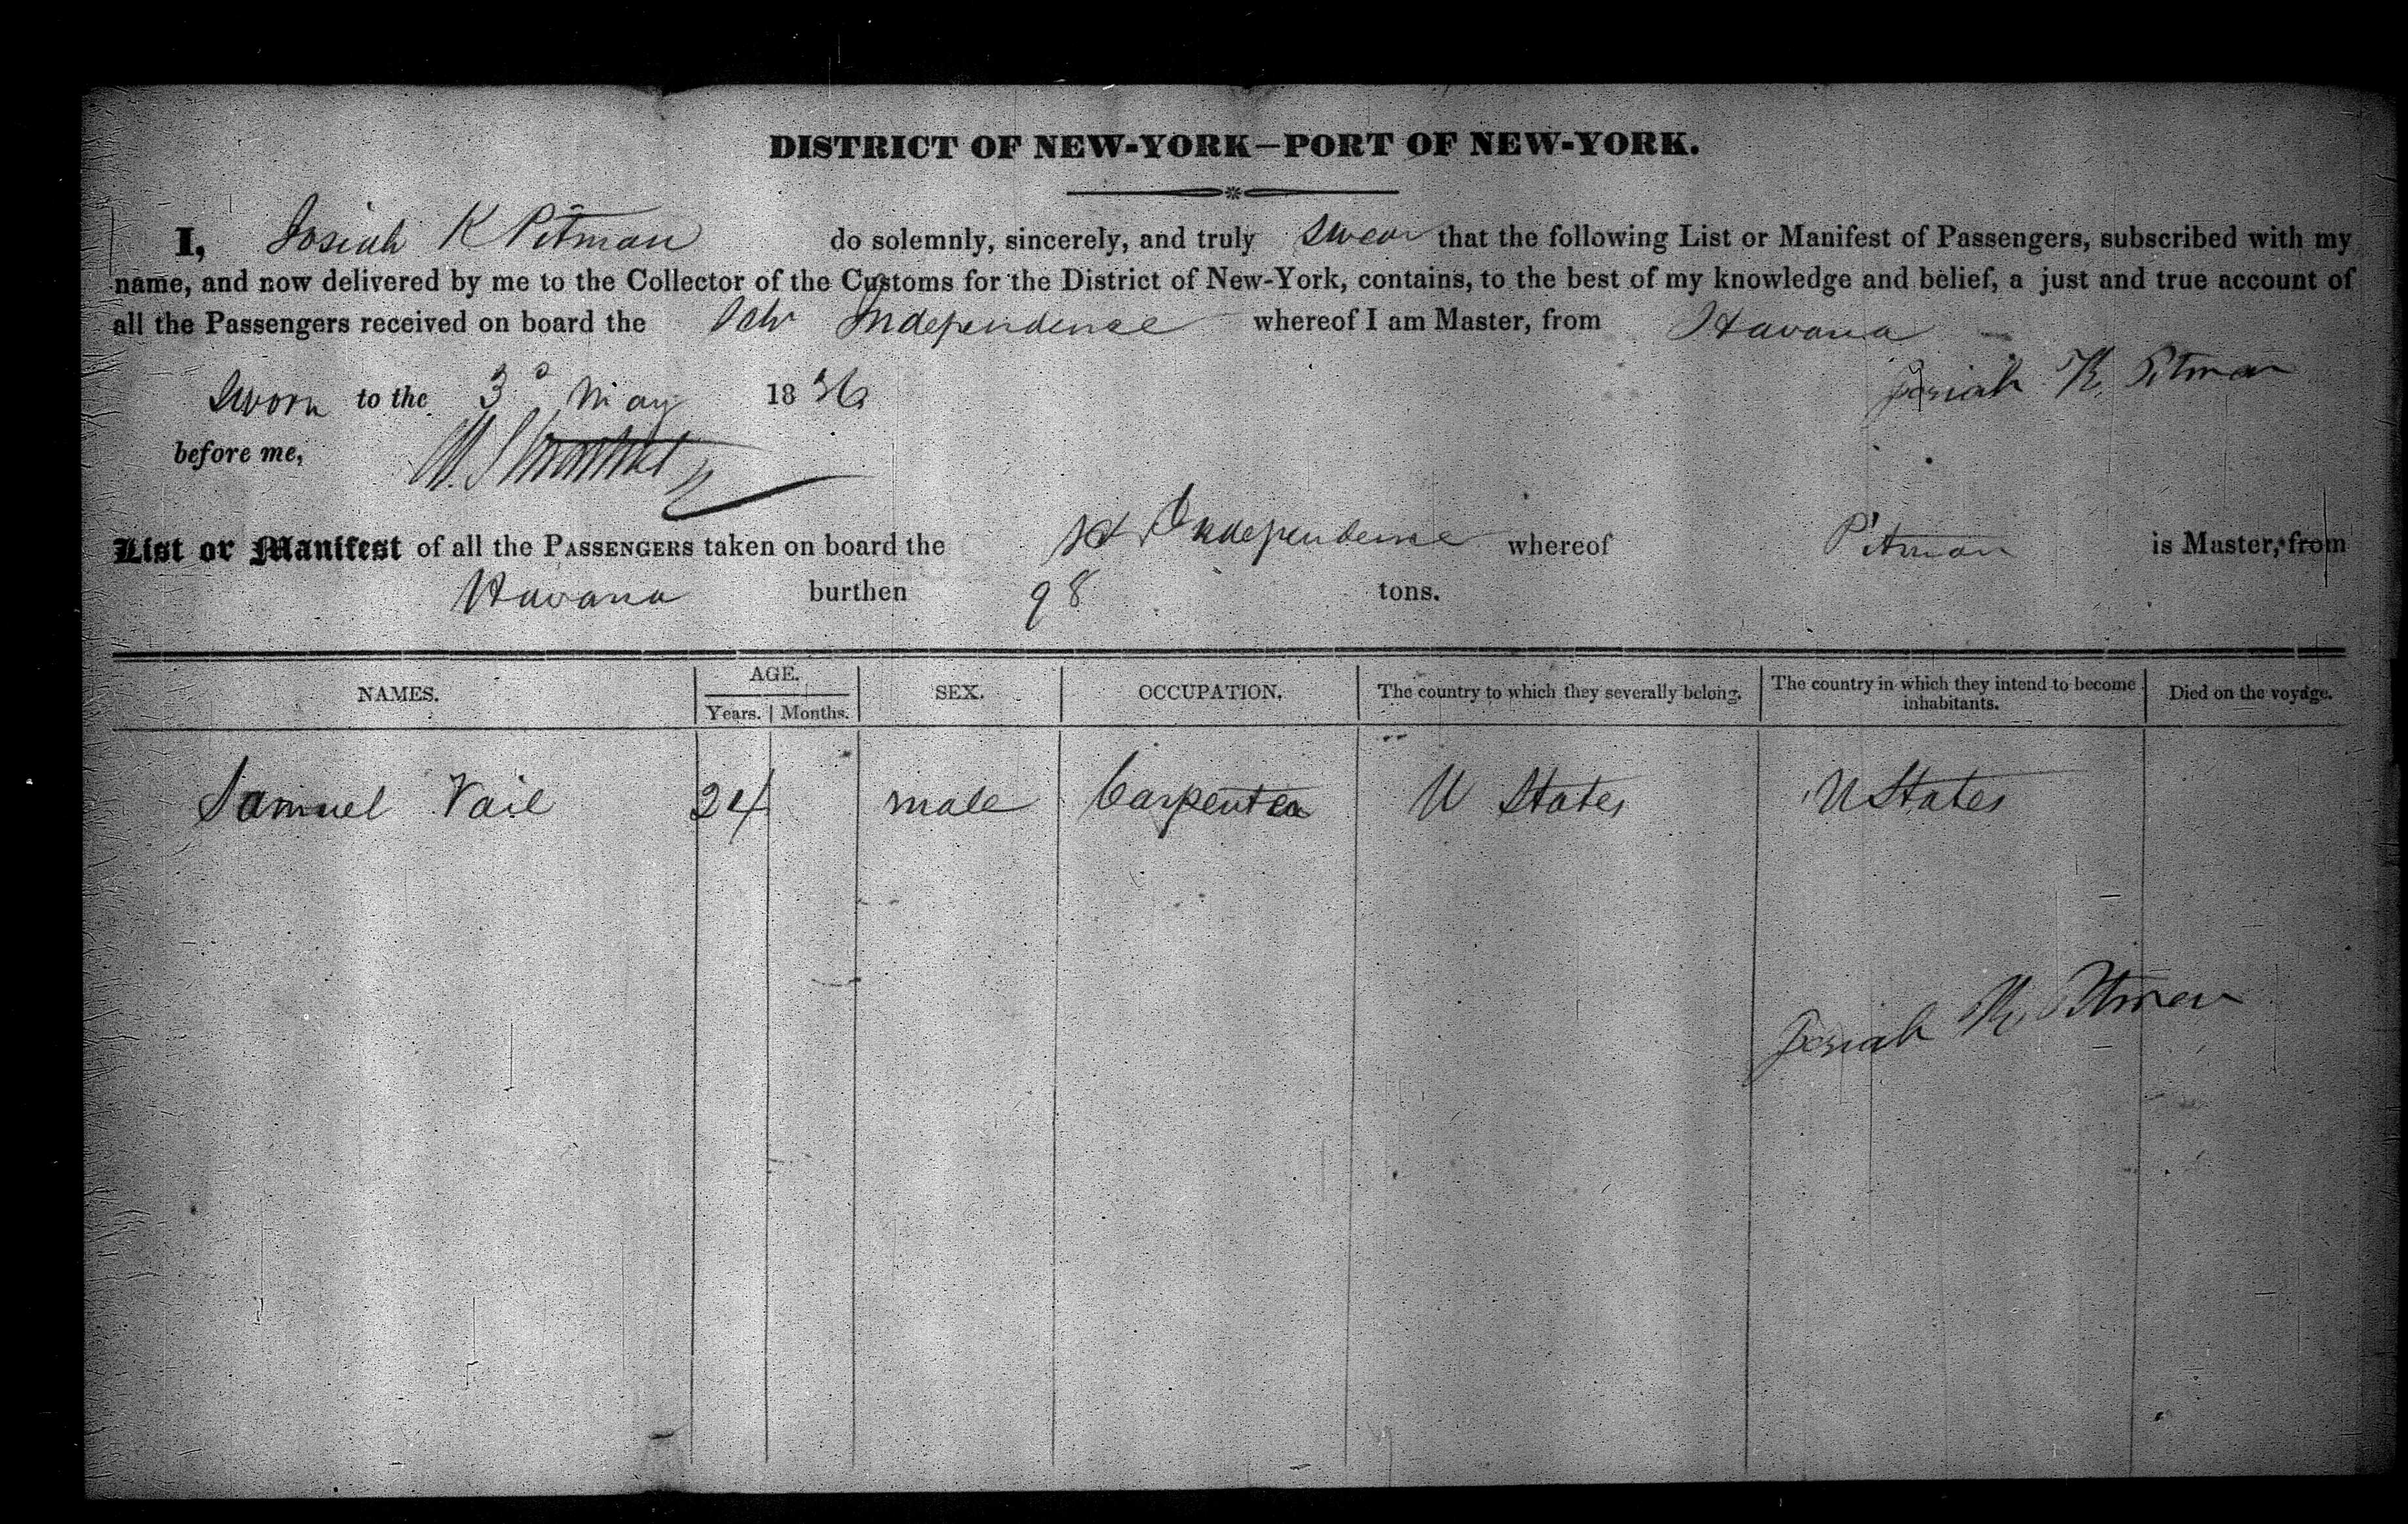 DISTRICT OF NEW-YORK—PORT OF NEW-YORK.
I, Josiah K Pitman do solemnly, sincerely, and truly swear that the following List or Manifest of Passengers, subscribed with my
name, and now delivered by me to the Collector of the Customs for the District of New-York, contains, to the best of my knowledge and belief, a just and true account of
all the Passengers received on board the Schr Independence whereof I am Master, from Havana
Sworn to the 3d May 1836 Josiah K. Pitman
before me,
List or Manifest of all the PASSENGERS taken on board the Independence whereof Pitman is Master, from
Havana burthen 98 tons.
NAMES. AGE. Years. Months. SEX. OCCUPATION. The country to which they severally belong. The country in which they intend to become inhabitants. Died on the voyage.
Samuel Vail 24 male Carpenter U States U States
Josiah K. Pitman